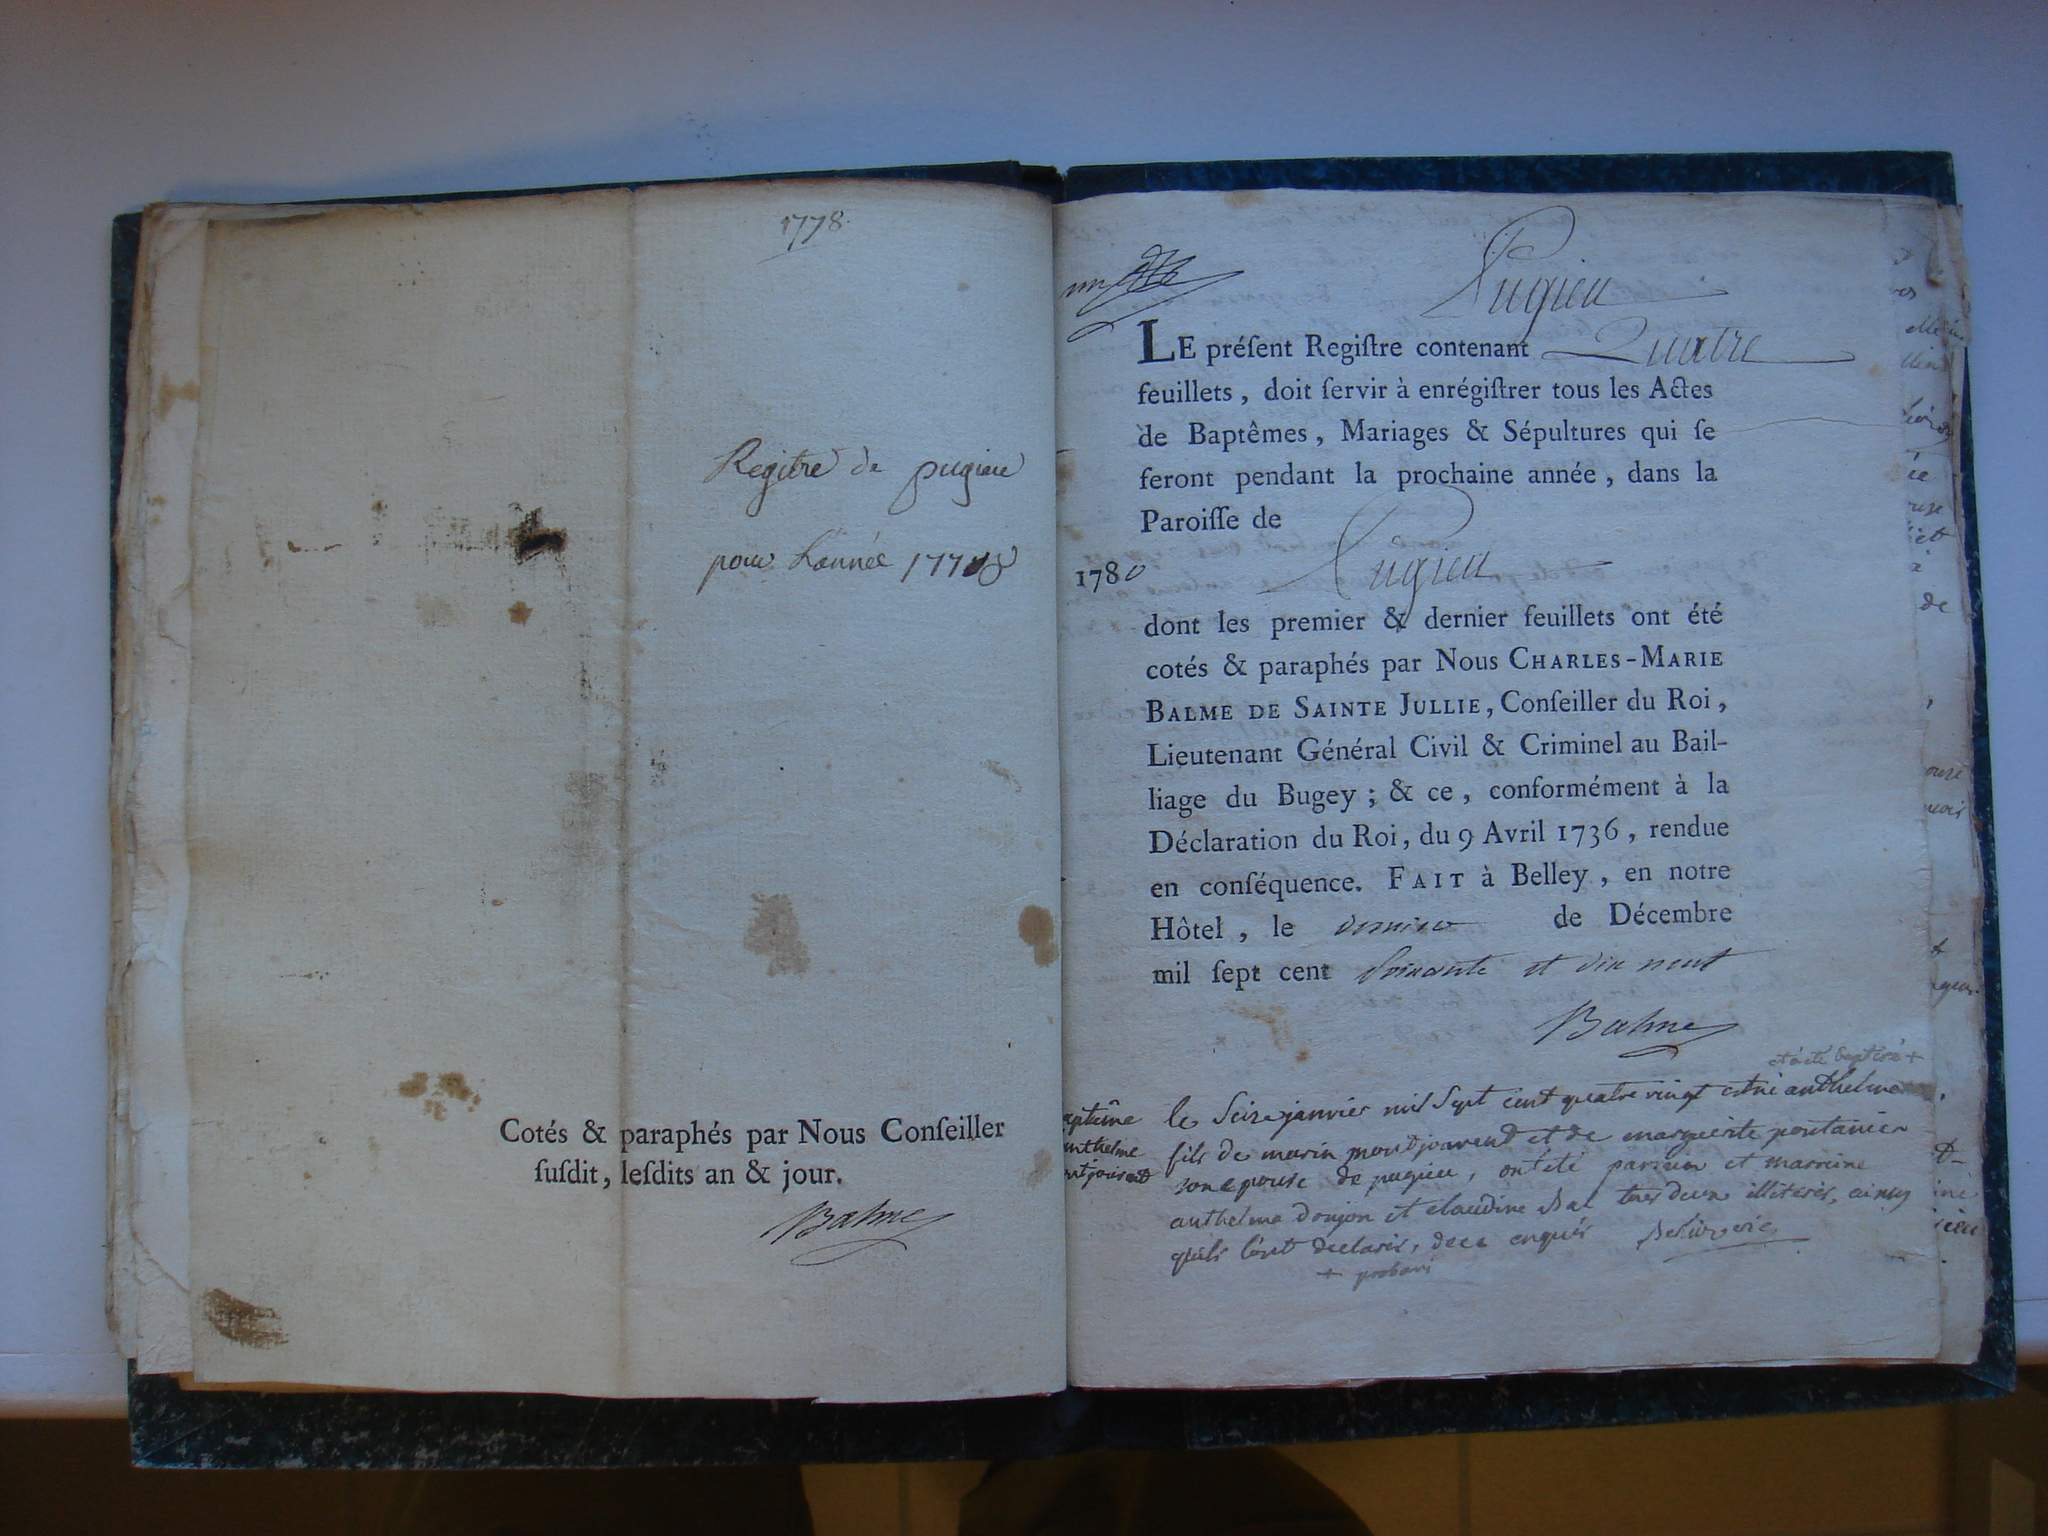 1778
Regitre de pugieu
pour L'année 1778
Cotés & paraphés par Nous Conſeiller
ſuſdit, leſdits an & jour.
Balme
un
Pugieu
LE préſent Regiſtre contenant Quatre
feuillets, doit ſervir à enrégiſtrer tous les Actes
de Baptêmes, Mariages & Sépultures qui ſe
feront pendant la prochaine année, dans la
Paroiſſe de
1780 Pugieu
dont les premier & dernier feuillets ont été
cotés & paraphés par Nous CHARLES-MARIE
BALME DE SAINTE JULLIE, Conſeiller du Roi,
Lieutenant Général Civil & Criminel au Bail-
liage du Bugey; & ce, conformément à la
Déclaration du Roi, du 9 Avril 1736, rendue
en conſéquence. FAIT à Belley, en notre
Hôtel, le dernier de Décembre
mil ſept cent soixante et dix neuf
Balme
et a été baptisé +
le seize janvier mil sept cent quatre vingt est né anthelme
fils de marin montjouvent et de marguerite pontanier
son epouse de pugieu, ont été parrain et marraine
anthelme donjon et claudine tous deux illiteres, ainsy
quils l'ont declarés, de ce enquis